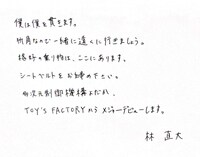 僕は僕を貫きます。
折角なので一緒に遠くに行きましょう。
格好の乗り物は、ここにあります。
シートベルトをお締め下さい。
四次元制御機構よだか、
TOY'S FACTORYからメジャーデビューします。
林 直大